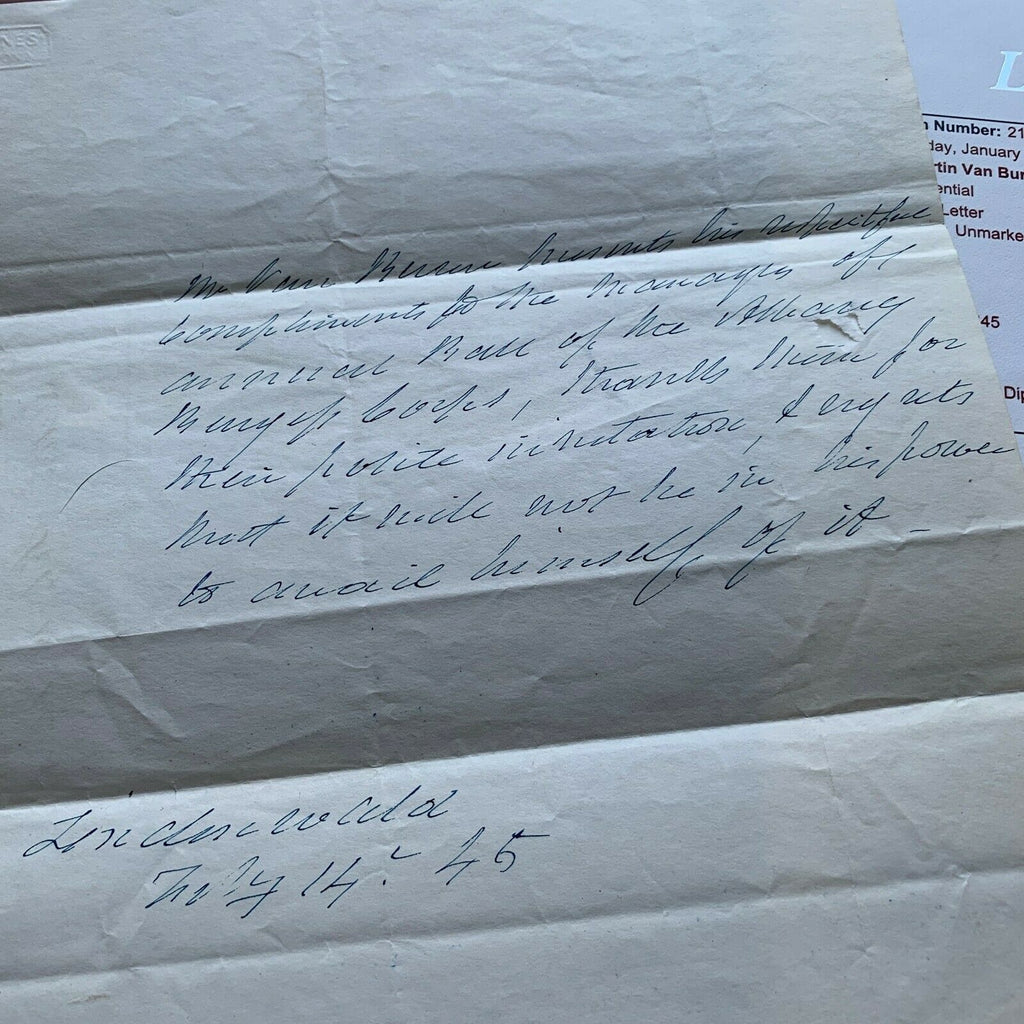 NES
L
n Number: 21
day, January
rtin Van Bur
ential
Letter
Unmarke
45
Dip
Mr Van Buren presents his respectful
compliments to the Managers of
annual Ball of the Albany
Burgess Corps, thanks them for
their polite invitation, & regrets
that it will not be in his power
to avail himself of it -
Lindenwald
Feby 14. 45